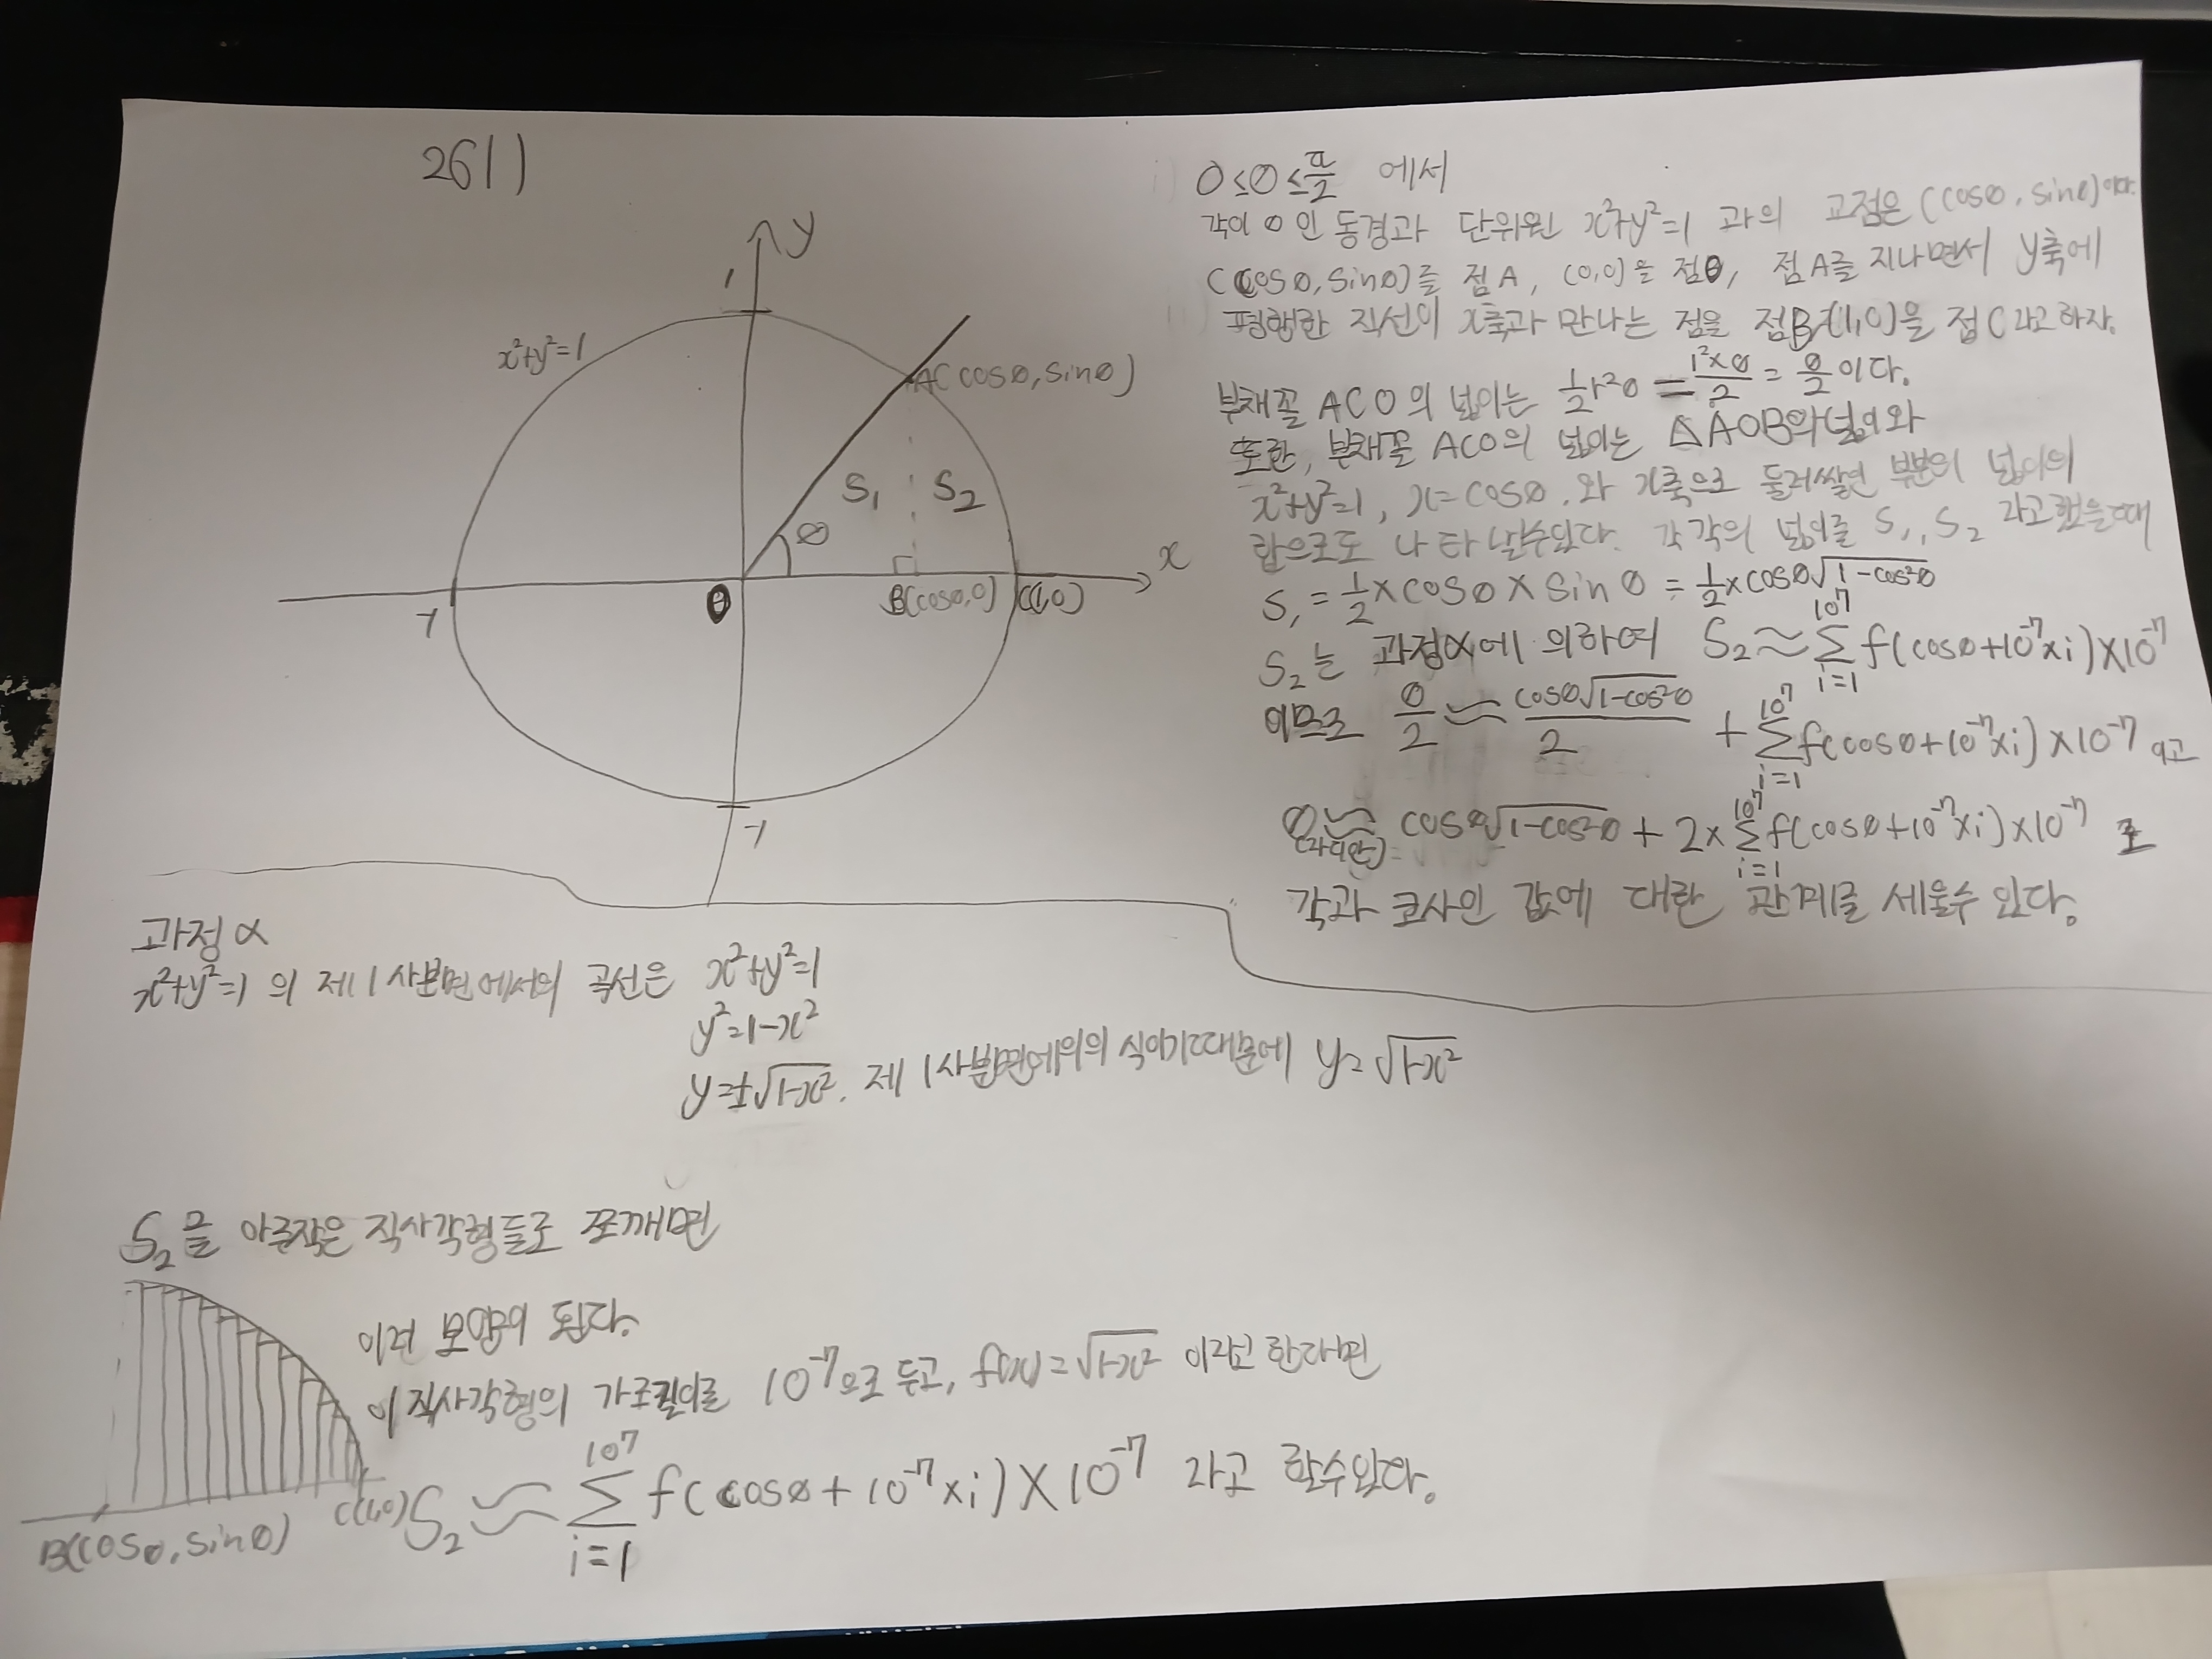 261)
y
1
x²+y²=1
A(cosθ, sinθ)
S₁ S₂
θ
x
-1
O
B(cosθ,0)
C(1,0)
-1
0≤θ≤π/2 에서
각이 θ인 동경과 단위원 x²+y²=1 과의 교점은 (cosθ, sinθ)이다.
(cosθ, sinθ)를 점A, (0,0)을 점O, 점A를 지나면서 y축에
평행한 직선이 x축과 만나는 점을 점B, (1,0)을 점C라고 하자.
부채꼴 ACO의 넓이는 1/2r²θ = 1²×θ/2 = θ/2 이다.
또한, 부채꼴 ACO의 넓이는 △AOB의 넓이와
x²+y²=1, x=cosθ, 와 x축으로 둘러쌓연 부분의 넓이의
합으로도 나타낼수있다. 각각의 넓이를 S₁, S₂ 라고했을때
S₁ = 1/2×cosθ×sinθ = 1/2×cosθ√(1-cos²θ)
S₂는 과정α에 의하여 S₂≈∑_{i=1}^{10⁷} f(cosθ+10⁻⁷×i)×10⁻⁷
이므로 θ/2 ≈ cosθ√(1-cos²θ)/2 + ∑_{i=1}^{10⁷} f(cosθ+10⁻⁷×i)×10⁻⁷ 이고
θ(라디안) ≈ cosθ√(1-cos²θ) + 2×∑_{i=1}^{10⁷} f(cosθ+10⁻⁷×i)×10⁻⁷ 로
각과 코사인 값에 대한 관계를 세울수 있다.
과정α
x²+y²=1 의 제1사분면에서의 곡선은 x²+y²=1
y²=1-x²
y=±√(1-x²). 제1사분면에의의 식이기때문에 y=√(1-x²)
S₂를 아주작은 직사각형들로 쪼개면
이런 모양이 된다.
이 직사각형의 가로길이를 10⁻⁷으로 두고, f(x)=√(1-x²) 이라고 한다면
S₂ ≈ ∑_{i=1}^{10⁷} f(cosθ+10⁻⁷×i)×10⁻⁷ 라고 할수있다.
B(cosθ, sinθ)
C(1,0)